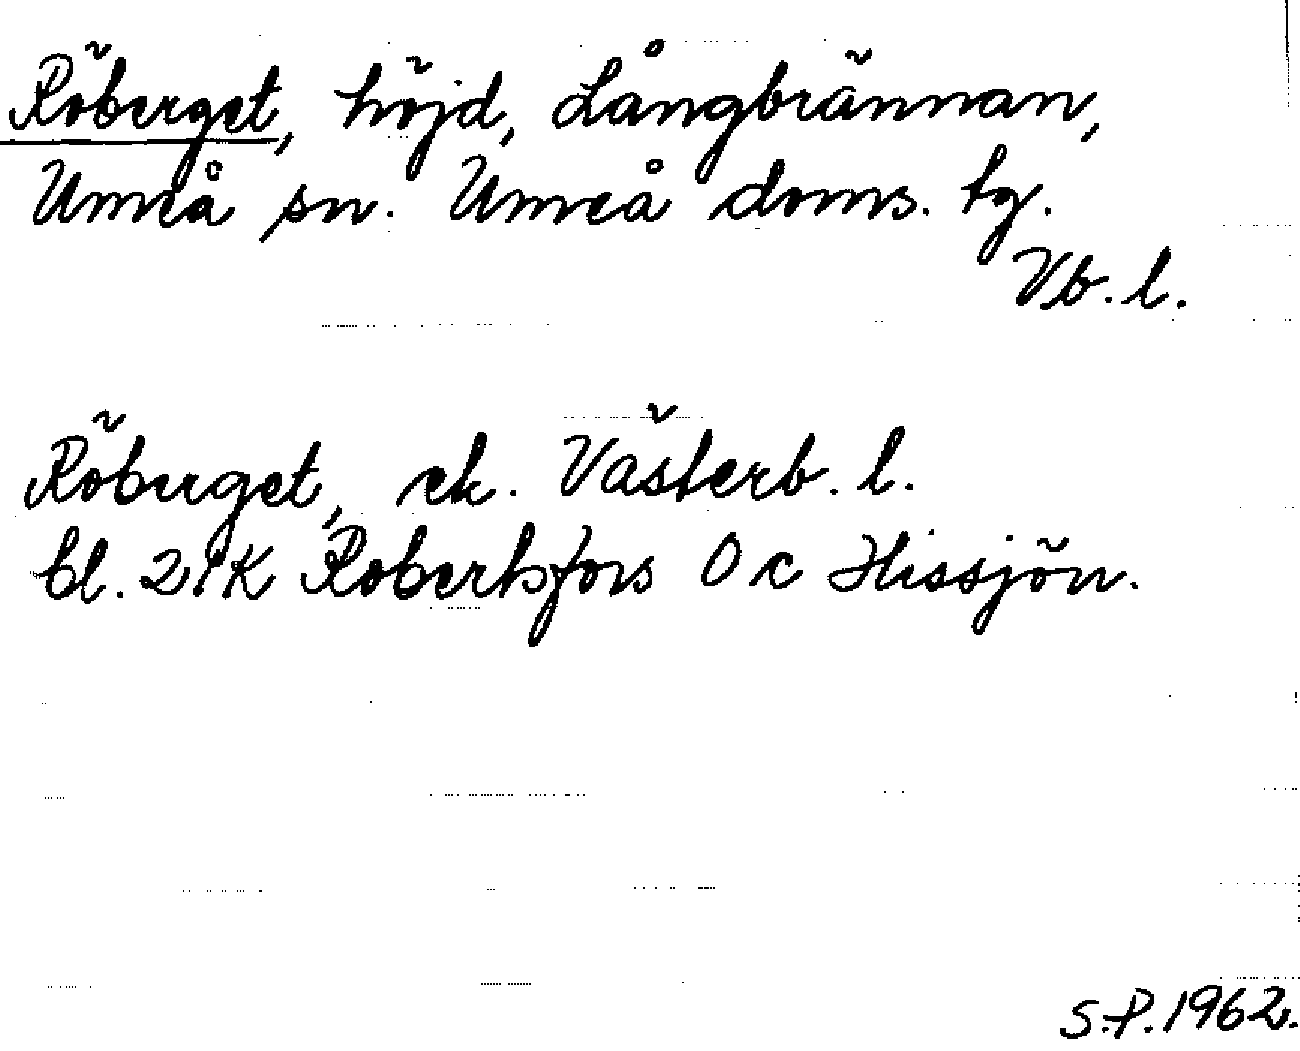 Röberget, höjd, Långbrännan,
Umeå sn. Umeå doms. tg.
Vb. l.
Röberget, ek. Västerb. l.
bl. 21K Robertsfors O c Hissjön.
S.P. 1962.